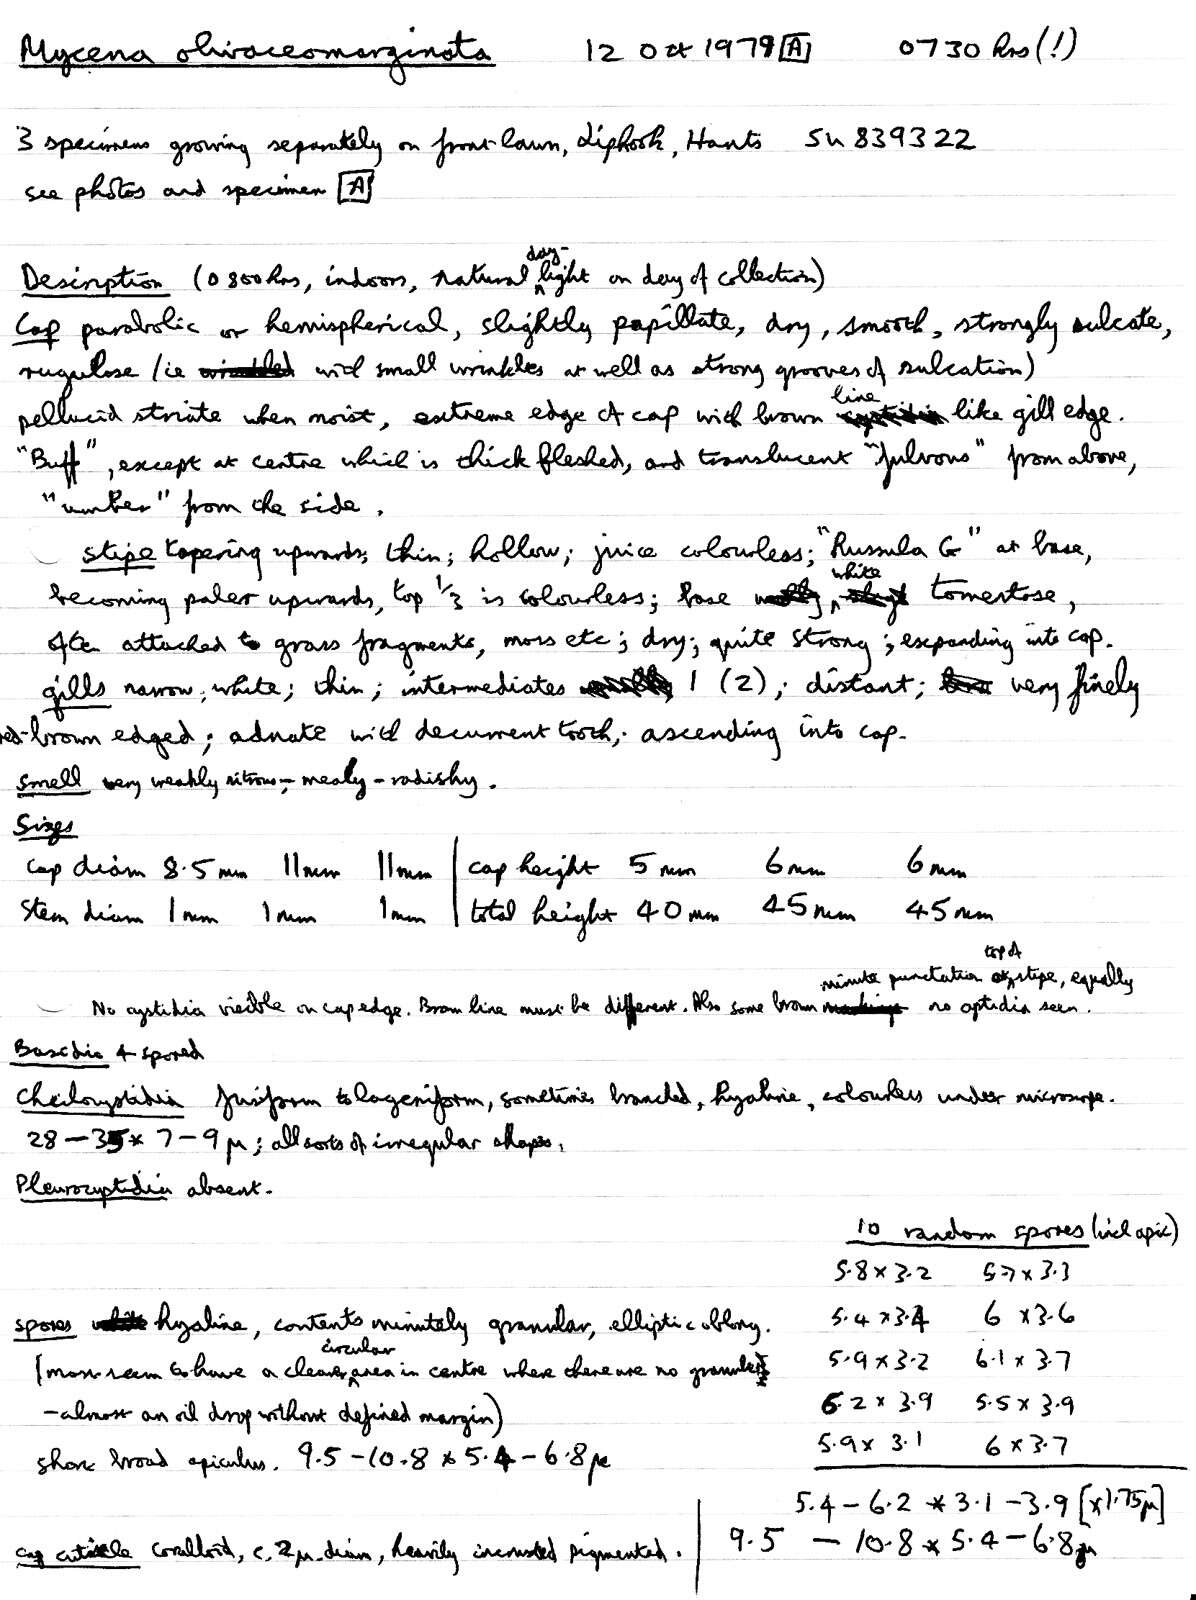 Mycena olivaceomarginata 12 Oct 1979 [A] 0730 hrs (!)
3 specimens growing separately on front lawn, Liphook, Hants SU 839322
see photos and specimen [A]
Description (0800hrs, indoors, natural day-light on day of collection)
Cap parabolic or hemispherical, slightly papillate, dry, smooth, strongly sulcate,
rugulose (ie with small wrinkles as well as strong grooves of sulcation)
pellucid striate when moist, extreme edge of cap with brown line like gill edge.
"Buff", except at centre which is thick fleshed, and translucent "fulvous" from above,
"umber" from the side.
stipe tapering upwards; thin; hollow; juice colourless; "Russula G" at base,
becoming paler upwards, top 1/3 is colourless; base white tomentose,
often attached to grass fragments, moss etc; dry; quite strong; expanding into cap.
gills narrow; white; thin; intermediates 1 (2); distant; very finely
red-brown edged; adnate with decurrent tooth; ascending into cap.
Smell very weakly nitrous - mealy - radishy.
Sizes
Cap diam 8.5 mm 11mm 11mm | cap height 5 mm 6mm 6mm
Stem diam 1mm 1mm 1mm | total height 40mm 45mm 45mm
No cystidia visible on cap edge. Brown line must be different. Also some brown minute punctation top of stipe, equally no cystidia seen.
Basidia 4 spored
Cheilocystidia fusiform to lageniform, sometimes branched, hyaline, colourless under microscope.
28 - 35 x 7 - 9 µ; all sorts of irregular shapes.
Pleurocystidia absent.
10 random spores (incl apic)
5.8 x 3.2 5.7 x 3.3
5.4 x 3.4 6 x 3.6
5.9 x 3.2 6.1 x 3.7
6.2 x 3.9 5.5 x 3.9
5.9 x 3.1 6 x 3.7
5.4 - 6.2 x 3.1 - 3.9 [x 1.75µ]
9.5 - 10.8 x 5.4 - 6.8µ
spores hyaline, contents minutely granular, elliptic oblong.
(most seem to have a clearer circular area in centre where there are no granules
- almost an oil drop without defined margin)
short broad apiculus. 9.5 - 10.8 x 5.4 - 6.8 µ
cap cuticle coralloid, c. 2µ diam, heavily incrusted pigmented.